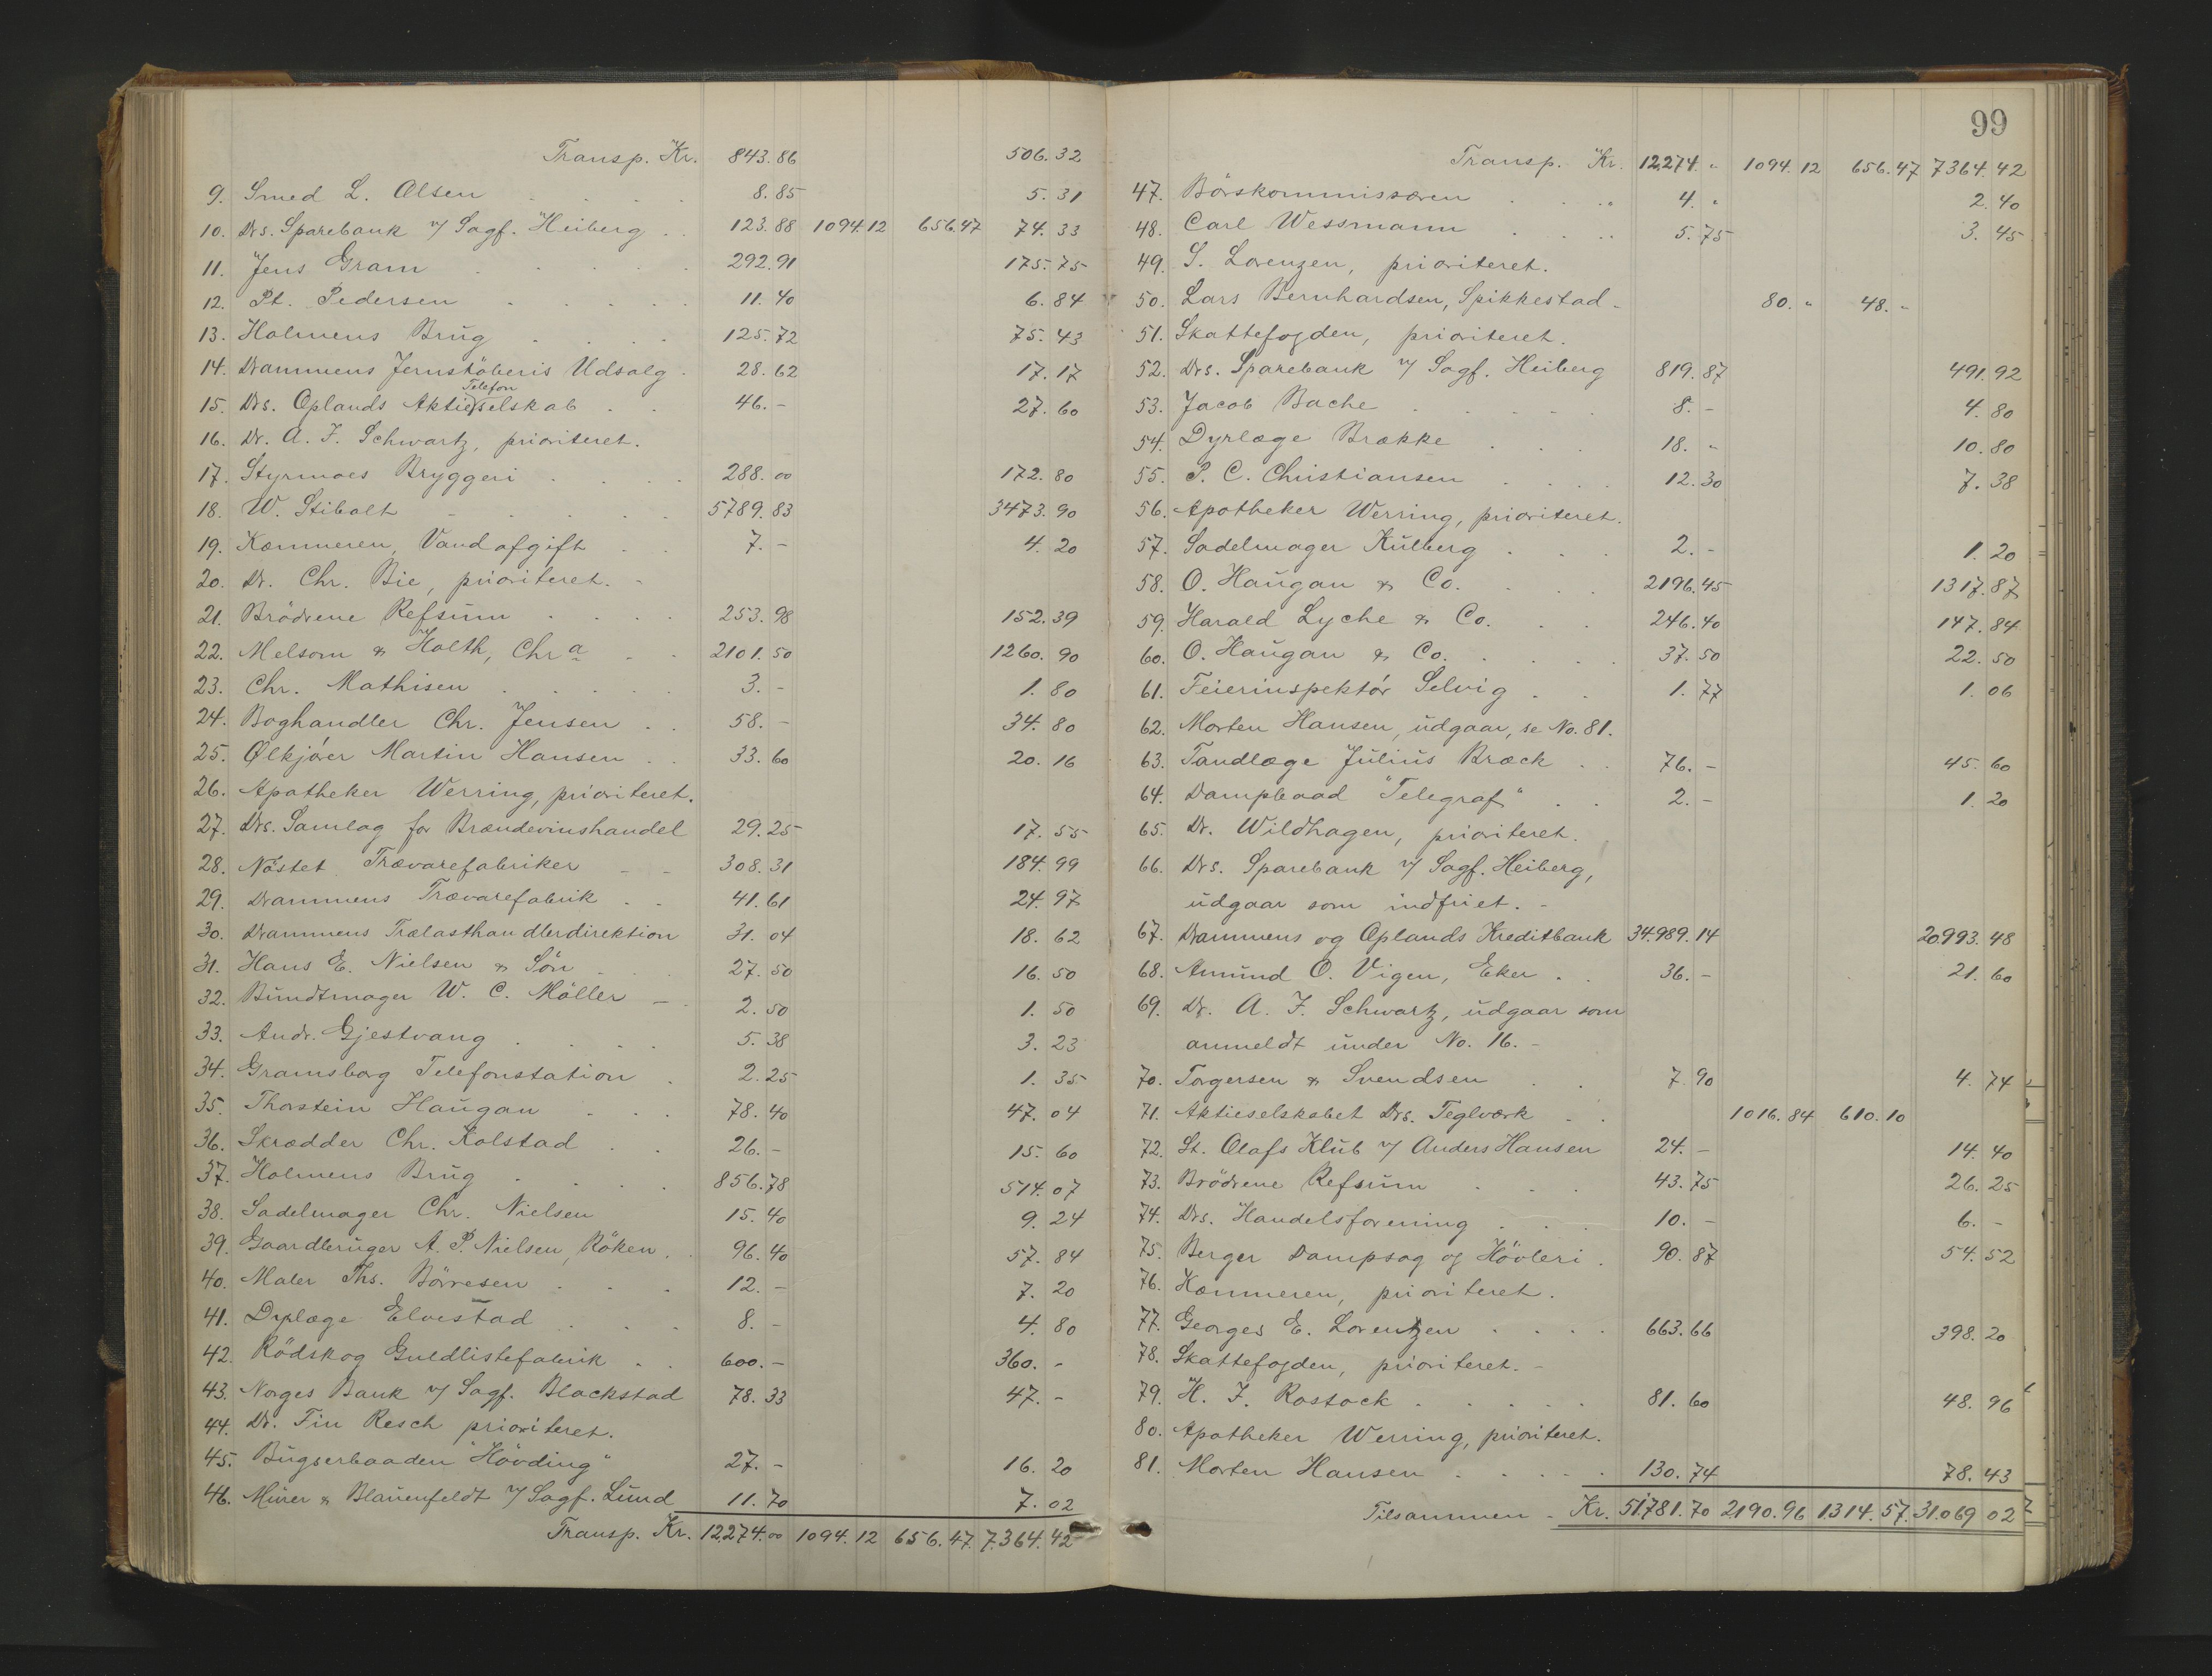 Transp. Kr. 843. 86 506. 32
9. Smed L. Olsen 8. 85 5. 31
10. Drs. Sparebank v/ Sagf. Heiberg 123. 88 1094. 12 656. 47 74. 33
11. Jens Gram 292. 91 175. 75
12. Pt. Pedersen 11. 40 6. 84
13. Holmens Brug 125. 72 75. 43
14. Drammens Jernstöberis Udsalg 28. 62 17. 17
Telefon
15. Drs. Oplands Aktieselskab 46. - 27. 60
16. Dr. A. F. Schwartz, prioriteret.
17. Styrmoes Bryggeri 288. 00 172. 80
18. W. Stibolt 5789. 83 3473. 90
19. Kæmneren, Vandafgift 7. - 4. 20
20. Dr. Chr. Bie, prioriteret. -
21. Brödrene Refsum 253. 98 152. 39
22. Melsom & Holth, Chra 2101. 50 1260. 90
23. Chr. Mathisen 3. - 1. 80
24. Boghandler Chr. Jensen 58. - 34. 80
25. Ølkjører Martin Hansen 33. 60 20. 16
26. Apotheker Werring, prioriteret.
27. Drs. Samlag for Brændevinshandel 29. 25 17. 55
28. Nöstet Trævarefabriker 308. 31 184. 99
29. Drammens Trævarefabrik 41. 61 24. 97
30. Drammens Trælasthandlerdirektion 31. 04 18. 62
31. Hans E. Nielsen & Sön 27. 50 16. 50
32. Bundtmager W. C. Möller 2. 50 1. 50
33. Andr. Gjestvang 5. 38 3. 23
34. Gramsborg Telefonstation 2. 25 1. 35
35. Thorstein Haugan 78. 40 47. 04
36. Skrædder Chr. Kolstad 26. - 15. 60
37. Holmens Brug 856. 78 514. 07
38. Sadelmager Chr. Nielsen 15. 40 9. 24
39. Gaardbruger A. P. Nielsen, Röken 96. 40 57. 84
40. Maler Ths. Börresen 12. - 7. 20
41. Dyrlæge Elvestad 8. - 4. 80
42. Rödskog Guldlistefabrik 600. - 360. -
43. Norges Bank v/ Sagf. Blackstad 78. 33 47. -
44. Dr. Fin Resch prioriteret.
45. Bugserbaaden "Hövding" 27. - 16. 20
46. Murer & Blauenfeldt v/ Sagf. Lund 11. 70 7. 02
Transp. Kr. 12,274. 00 1094. 12 656. 47. 7.364. 42
99
Transp. Kr. 12,274. " 1094. 12 656. 47 7364. 42
47. Börskommissæren 4. " 2. 40
48. Carl Wessmann 5. 75 3. 45
49. S. Lorenzen, prioriteret.
50. Lars Bernhardsen, Spikkestad 80. " 48. -
51. Skattefogden, prioriteret.
52. Drs. Sparebank v/ Sagf. Heiberg 819. 87 491. 92
53. Jacob Bache 8. - 4. 80
54. Dyrlæge Brække 18. " 10. 80
55. P. C. Christiansen 12. 30 7. 38
56. Apotheker Werring, prioriteret.
57. Sadelmager Kulberg 2. - 1. 20
58. O. Haugan & Co. 2196. 45 1317. 87
59. Harald Lyche & Co. 246. 40 147. 84
60. O. Haugan & Co. 37. 50 22. 50
61. Feierinspektör Selvig 1. 77 1. 06
62. Morten Hansen, udgaar, se No. 81.
63. Tandlæge Julius Bræck 76. - 45. 60
64. Dampbaad "Telegraf" 2. - 1. 20
65. Dr. Wildhagen, prioriteret.
66. Drs. Sparebank v/ Sagf. Heiberg,
udgaar som indfriet. -
67. Drammens og Oplands Kreditbank 34.989. 14 20.993. 48
68. Amund O. Vigen, Eker 36. - 21. 60
69. Dr. A. F. Schwartz, udgaar som
anmeldt under No. 16. -
70. Torgersen & Svendsen 7. 90 4. 74
71. Aktieselskabet Drs. Teglværk 1016. 84 610. 10
72. St. Olafs Klub v/ Anders Hansen 24. - 14. 40
73. Brödrene Refsum 43. 75 26. 25
74. Drs. Handelsforening 10. - 6. -
75. Berger Dampsag og Hövleri 90. 87 54. 52
76. Kæmneren, prioriteret.
77. Georges E. Lorentzen 663. 66 398. 20
78. Skattefogden, prioriteret. -
79. H. F. Rostock 81. 60 48. 96
80. Apotheker Werring, prioriteret.
81. Morten Hansen 130. 74 78. 43
Tilsammen - Kr. 51.781. 70 2190. 96 1314. 57. 31.069 02